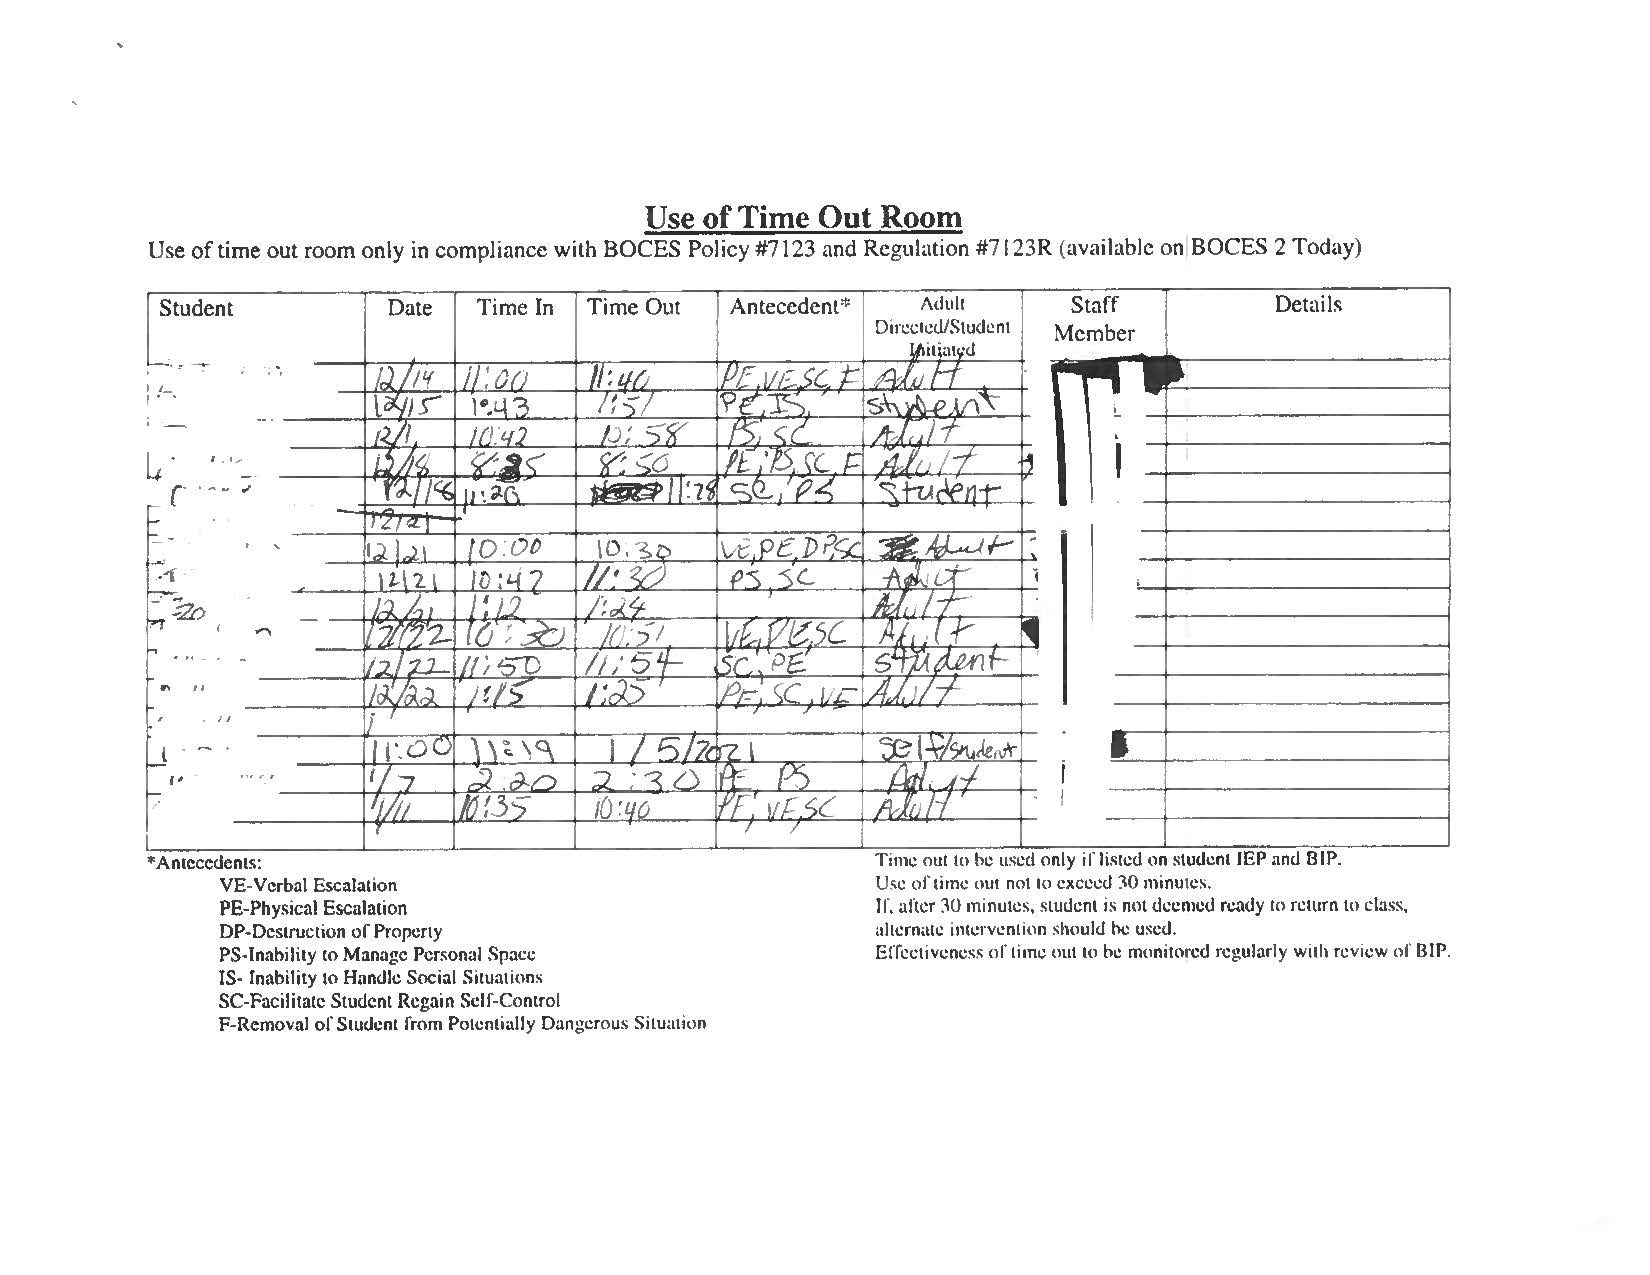 Use of Time Out Room
Use of time out room only in compliance with BOCES Policy #7123 and Regulation #7123R (available on BOCES 2 Today)
Student Date Time In Time Out Antecedent* Adult Directed/Student Initiated Staff Member Details
12/14 11:00 11:40 PE,VE,SC,F Adult
12/15 1:43 1:51 PE,IS, student
10:42 10:58 PS,SC Adult
12/18 8:50 PE,PS,SC,F Adult
12/18 11:20 11:28 SC,PS Student
12/21
12/21 10:00 10:30 VE,PE,DP,SC Adult
12/21 10:42 11:30 PS,SC Adult
20 12/21 1:12 1:24 Adult
12/22 10:30 10:51 VE,PE,SC Adult
12/22 11:50 11:54 SC,PE student
12/22 1:15 1:25 PE,SC,VE Adult
11:00 11:19 1/5/2021 self/student
1/7 2:20 2:30 PE PS Adult
1/11 10:35 10:40 PE,VE,SC Adult
*Antecedents:
VE-Verbal Escalation
PE-Physical Escalation
DP-Destruction of Property
PS-Inability to Manage Personal Space
IS- Inability to Handle Social Situations
SC-Facilitate Student Regain Self-Control
F-Removal of Student from Potentially Dangerous Situation
Time out to be used only if listed on student IEP and BIP.
Use of time out not to exceed 30 minutes.
If, after 30 minutes, student is not deemed ready to return to class,
alternate intervention should be used.
Effectiveness of time out to be monitored regularly with review of BIP.